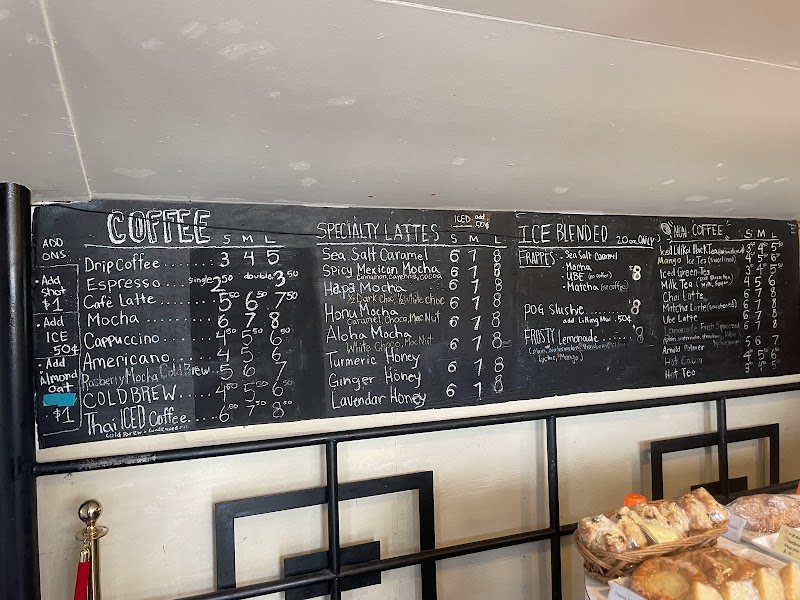 COFFEE
S M L
ADD
ONS
• Add
Shot
$1
• Add
ICE
50¢
• Add
Almond
Oat
$1
Drip Coffee.... 3 4 5
Espresso... single 2 50 double 3 50
Café Latte...... 5 50 6 50 7 50
Mocha...... 6 7 8
Cappuccino.... 4 50 5 50 6 50
Americano...... 4 5 6
Raspberry Mocha Cold Brew... 5 6 7
COLD BREW... 4 50 5 50 6 50
Thai ICED Coffee. 6 50 7 50 8 50
SPECIALTY LATTES
ICED add
50¢
S M L
Sea Salt Caramel 6 7 8
Spicy Mexican Mocha 6 7 8
Cinnamon, Cayenne, Cocoa
Hapa Mocha 6 7 8
½ Dark Choc, ½ White choc
Honu Mocha 6 7 8
Caramel, Choco, Mac Nut
Aloha Mocha 6 7 8
White Choco, Mac Nut
Turmeric Honey 6 7 8
Ginger Honey 6 7 8
Lavendar Honey 6 7 8
ICE BLENDED 20oz ONLY
FRAPPES - Sea Salt Caramel
- Mocha
- UBE (no coffee) 8
- Matcha (no coffee)
POG Slushie...... 8
add Lilikoi .50¢
FROSTY Lemonade..... 8
Lychee, Mango)
NON-COFFEE S M L
Iced Lilikoi Black Tea
Mango Ice Tea (sweetened)
Iced Green Tea
Milk Tea
Chai Latte
Matcha Latte (sweetened)
UBE Latte
Lemonade Fresh Squeezed
Arnold Palmer
Hot Cocoa
Hot Tea